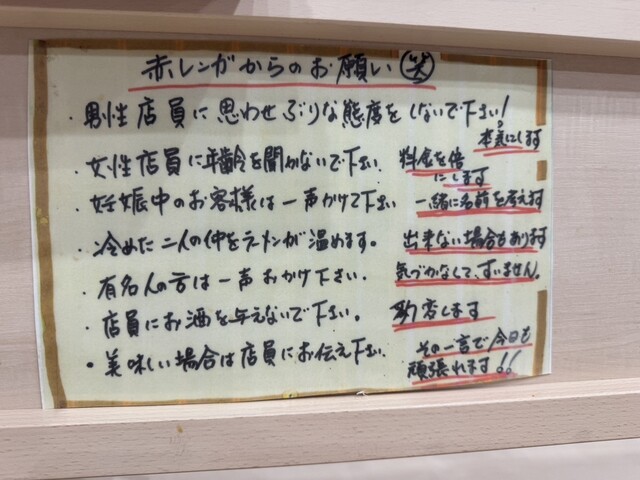 赤レンガからのお願い 笑
・男性店員に思わせぶりな態度をしないで下さい!
本気にします
・女性店員に年齢を聞かないで下さい 料金を倍にします
・妊娠中のお客様は一声かけて下さい 一緒に名前を考えます
・冷めた二人の仲をラーメンが温めます。 出来ない場合もあります
・有名人の方は一声おかけ下さい。 気づかなくて、すいません。
・店員にお酒を与えないで下さい。
・美味しい場合は店員にお伝え下さい その一言で今日も
頑張れます!!